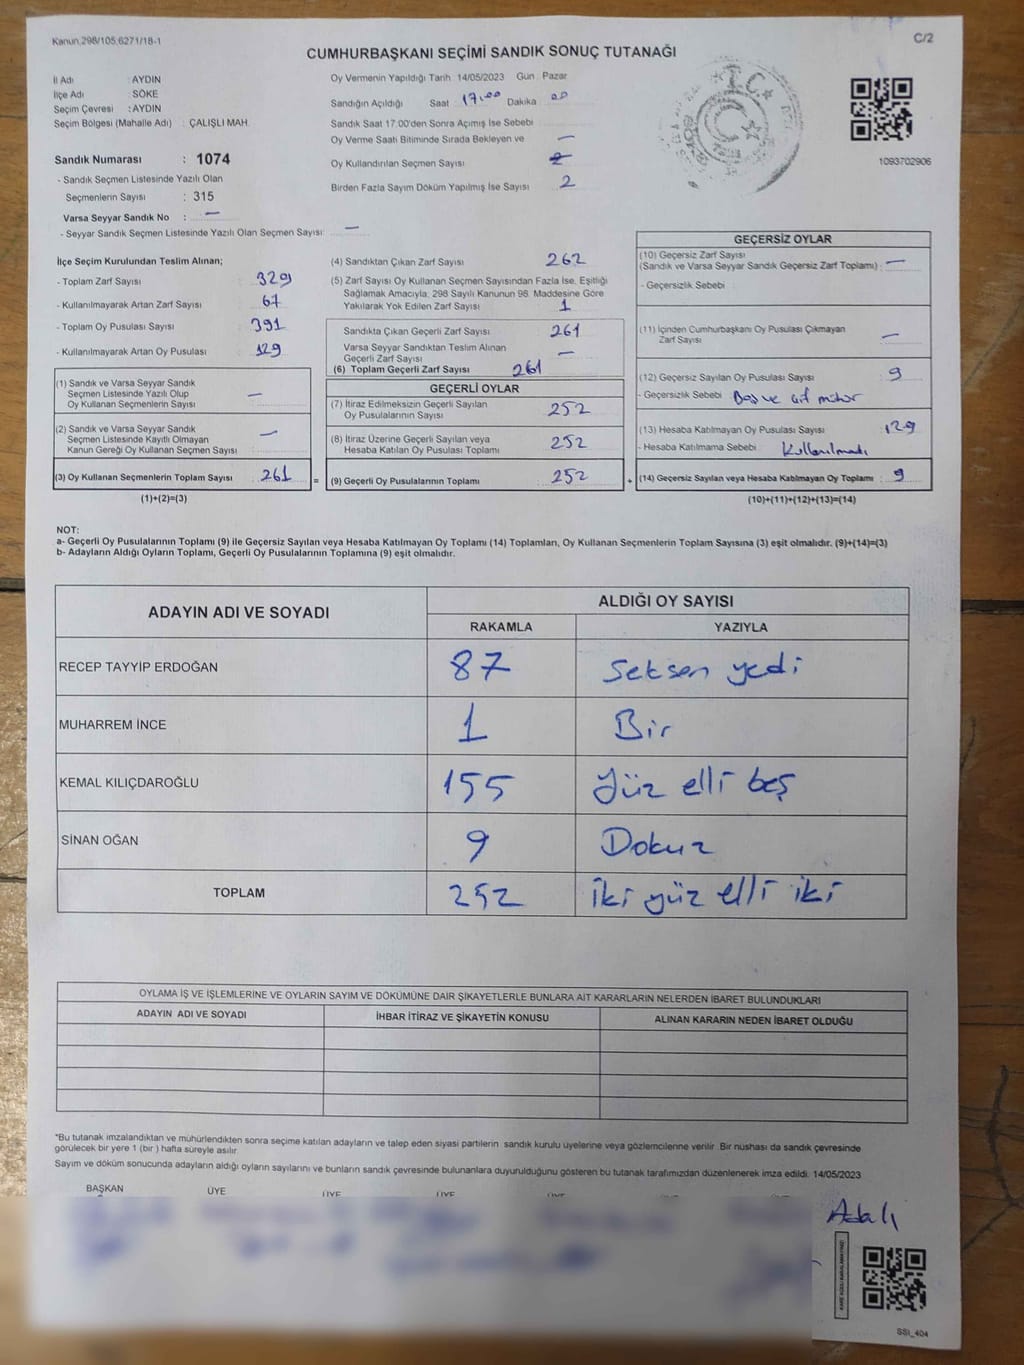 Kanun.298/105,6271/18-1
C/2
CUMHURBAŞKANI SEÇİMİ SANDIK SONUÇ TUTANAĞI
İl Adı : AYDIN
İlçe Adı : SÖKE
Seçim Çevresi : AYDIN
Seçim Bölgesi (Mahalle Adı) : ÇALIŞLI MAH.
Sandık Numarası : 1074
- Sandık Seçmen Listesinde Yazılı Olan
Seçmenlerin Sayısı : 315
Varsa Seyyar Sandık No : —
- Seyyar Sandık Seçmen Listesinde Yazılı Olan Seçmen Sayısı: —
Oy Vermenin Yapıldığı Tarih 14/05/2023 Gün Pazar
Sandığın Açıldığı Saat 17.00 Dakika 00
Sandık Saat 17.00'den Sonra Açımış İse Sebebi
Oy Verme Saati Bitiminde Sırada Bekleyen ve —
Oy Kullandırılan Seçmen Sayısı
Birden Fazla Sayım Döküm Yapılmış İse Sayısı 2
T.C.
1093702906
İlçe Seçim Kurulundan Teslim Alınan;
- Toplam Zarf Sayısı 329
- Kullanılmayarak Artan Zarf Sayısı 67
- Toplam Oy Pusulası Sayısı 391
- Kullanılmayarak Artan Oy Pusulası 129
(1) Sandık ve Varsa Seyyar Sandık
Seçmen Listesinde Yazılı Olup
Oy Kullanan Seçmenlerin Sayısı —
(2) Sandık ve Varsa Seyyar Sandık
Seçmen Listesinde Kayıtlı Olmayan
Kanun Gereği Oy Kullanan Seçmen Sayısı —
(3) Oy Kullanan Seçmenlerin Toplam Sayısı 261 =
(1)+(2)=(3)
(4) Sandıktan Çıkan Zarf Sayısı 262
(5) Zarf Sayısı Oy Kullanan Seçmen Sayısından Fazla İse, Eşitliği
Sağlamak Amacıyla; 298 Sayılı Kanunun 98. Maddesine Göre
Yakılarak Yok Edilen Zarf Sayısı 1
Sandıkta Çıkan Geçerli Zarf Sayısı 261
Varsa Seyyar Sandıktan Teslim Alınan
Geçerli Zarf Sayısı —
(6) Toplam Geçerli Zarf Sayısı 261
GEÇERLİ OYLAR
(7) İtiraz Edilmeksizin Geçerli Sayılan
Oy Pusulalarının Sayısı 252
(8) İtiraz Üzerine Geçerli Sayılan veya
Hesaba Katılan Oy Pusulası Toplamı 252
(9) Geçerli Oy Pusulalarının Toplamı 252 +
GEÇERSİZ OYLAR
(10) Geçersiz Zarf Sayısı
(Sandık ve Varsa Seyyar Sandık Geçersiz Zarf Toplamı) —
- Geçersizlik Sebebi
(11) İçinden Cumhurbaşkanı Oy Pusulası Çıkmayan
Zarf Sayısı —
(12) Geçersiz Sayılan Oy Pusulası Sayısı 9
- Geçersizlik Sebebi Boş ve çift mühür
(13) Hesaba Katılmayan Oy Pusulası Sayısı 129
- Hesaba Katılmama Sebebi Kullanılmadı
(14) Geçersiz Sayılan veya Hesaba Katılmayan Oy Toplamı 9
(10)+(11)+(12)+(13)=(14)
NOT:
a- Geçerli Oy Pusulalarının Toplamı (9) ile Geçersiz Sayılan veya Hesaba Katılmayan Oy Toplamı (14) Toplamları, Oy Kullanan Seçmenlerin Toplam Sayısına (3) eşit olmalıdır. (9)+(14)=(3)
b- Adayların Aldığı Oyların Toplamı, Geçerli Oy Pusulalarının Toplamına (9) eşit olmalıdır.
ADAYIN ADI VE SOYADI ALDIĞI OY SAYISI
RAKAMLA YAZIYLA
RECEP TAYYİP ERDOĞAN 87 Seksen yedi
MUHARREM İNCE 1 Bir
KEMAL KILIÇDAROĞLU 155 Yüz elli beş
SİNAN OĞAN 9 Dokuz
TOPLAM 252 İki yüz elli iki
OYLAMA İŞ VE İŞLEMLERİNE VE OYLARIN SAYIM VE DÖKÜMÜNE DAİR ŞİKAYETLERLE BUNLARA AİT KARARLARIN NELERDEN İBARET BULUNDUKLARI
ADAYIN ADI VE SOYADI İHBAR İTİRAZ VE ŞİKAYETİN KONUSU ALINAN KARARIN NEDEN İBARET OLDUĞU
*Bu tutanak imzalandıktan ve mühürlendikten sonra seçime katılan adayların ve talep eden siyasi partilerin sandık kurulu üyelerine veya gözlemcilerine verilir. Bir nüshası da sandık çevresinde
görülecek bir yere 1 (bir) hafta süreyle asılır.
Sayım ve döküm sonucunda adayların aldığı oyların sayılarını ve bunların sandık çevresinde bulunanlara duyurulduğunu gösteren bu tutanak tarafımızdan düzenlenerek imza edildi: 14/05/2023
BAŞKAN ÜYE ÜYE ÜYE ÜYE
Adalı
KARE KODU KARALAMAYINIZ!
SSI_404